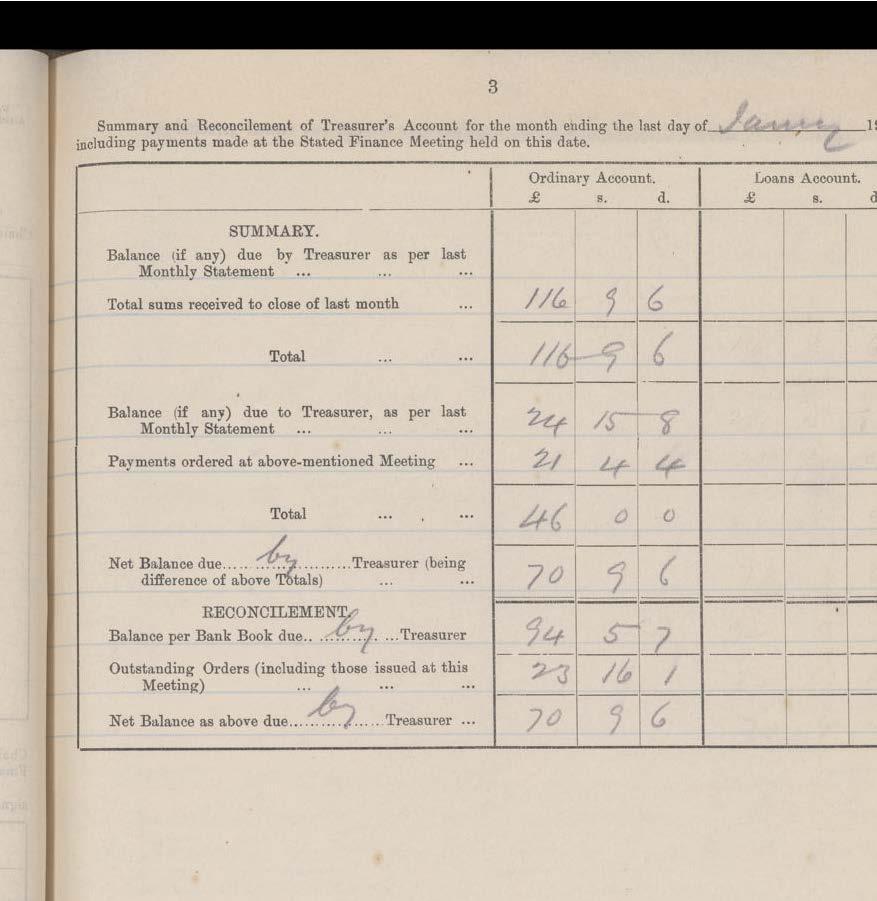 3
Summary and Reconcilement of Treasurer's Account for the month ending the last day of January 19
including payments made at the Stated Finance Meeting held on this date.
Ordinary Account. Loans Account.
£ s. d. £ s. d
SUMMARY.
Balance (if any) due by Treasurer as per last
Monthly Statement ... ... ...
Total sums received to close of last month ... 116 9 6
Total ... ... 116 9 6
Balance (if any) due to Treasurer, as per last
Monthly Statement ... ... ... 24 15 8
Payments ordered at above-mentioned Meeting ... 21 4 4
Total ... ... 46 0 0
Net Balance due.....by..........Treasurer (being
difference of above Totals) ... ... 70 9 6
RECONCILEMENT.
Balance per Bank Book due.. by ...Treasurer 94 5 7
Outstanding Orders (including those issued at this
Meeting) ... ... ... 23 16 1
Net Balance as above due....by......Treasurer ... 70 9 6